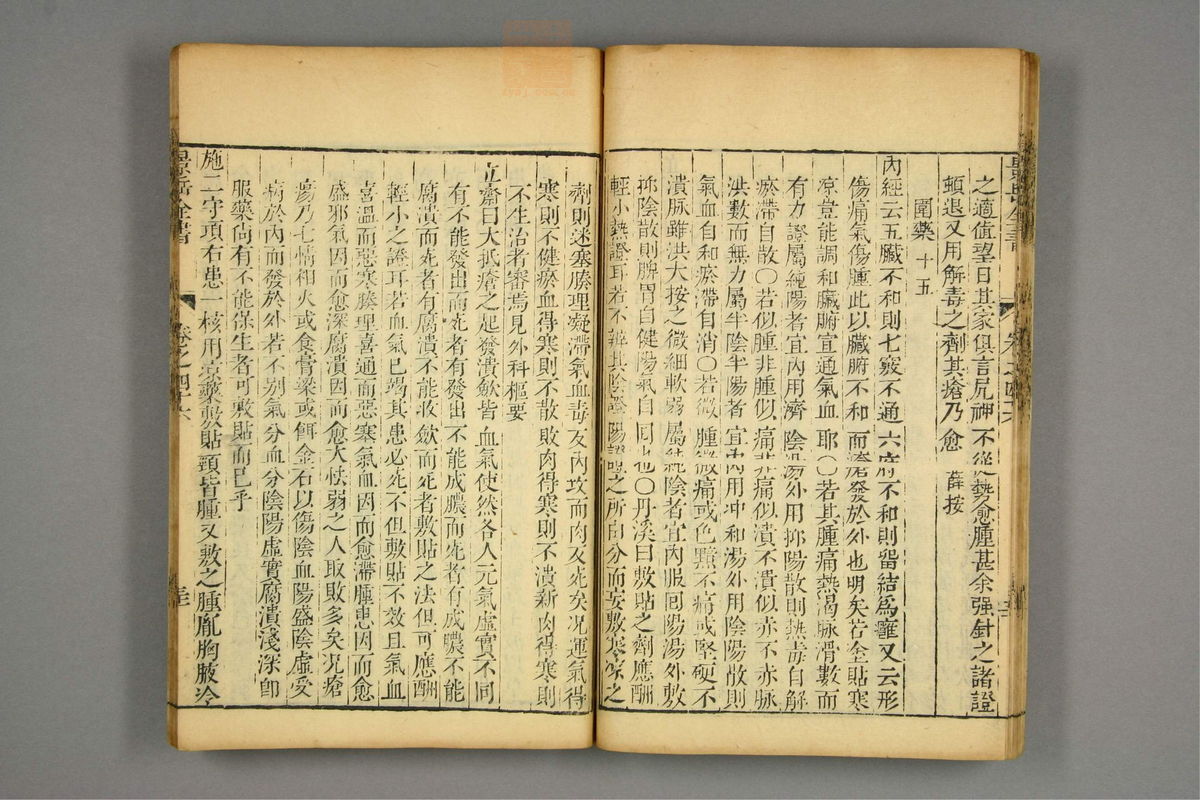 之適值望日其家俱言尻神不從勢愈腫甚余強針之諸證
頓退又用解毒之劑其瘡乃愈 薛按
圍藥 十五
內經云五臟不和則七竅不通六府不和則留結為癰又云形
傷痛氣傷腫此以臟腑不和而瘡發於外也明矣若全貼寒
凉豈能調和臟腑宜通氣血耶〇若其腫痛熱渴脉滑數而
有力證屬純陽者宜內用濟陰湯外用抑陽散則熱毒自解
瘀滯自散〇若似腫非腫似痛非痛似潰不潰似赤不赤脉
洪數而無力屬半陰半陽者宜內用冲和湯外用陰陽散則
氣血自和瘀滯自消〇若微腫微痛或色黯不痛或堅硬不
潰脉雖洪大按之微細軟弱屬純陰者宜內服囘陽湯外敷
抑陰散則脾胃自健陽氣自囘也〇丹溪曰敷貼之劑應酬
輕小熱證耳若不辨其陰證陽證之所由分而妄敷寒凉之
劑則迷塞腠理凝滯氣血毒反內攻而肉反死矣况運氣得
寒則不健瘀血得寒則不散敗肉得寒則不潰新肉得寒則
不生治者審焉見外科樞要
立齋曰大抵瘡之起發潰斂皆血氣使然各人元氣虛實不同
有不能發出而死者有發出不能成膿而死者有成膿不能
腐潰而死者有腐潰不能收斂而死者敷貼之法但可應酬
輕小之證耳若血氣已竭其患必死不但敷貼不效且氣血
喜溫而惡寒腠理喜通而惡寒氣血因而愈滯腫患因而愈
盛邪氣因而愈深腐潰因而愈大怯弱之人取敗多矣况瘡
瘍乃七情相火或食膏粱或餌金石以傷陰血陽盛陰虛受
病於內而發於外若不別氣分血分陰陽虛實腐潰淺深卽
服藥尙有不能保生者可敷貼而已乎
施二守項右患一核用凉藥敷貼頸皆腫又敷之腫胤胸腋冷
景岳全書
卷之四十六